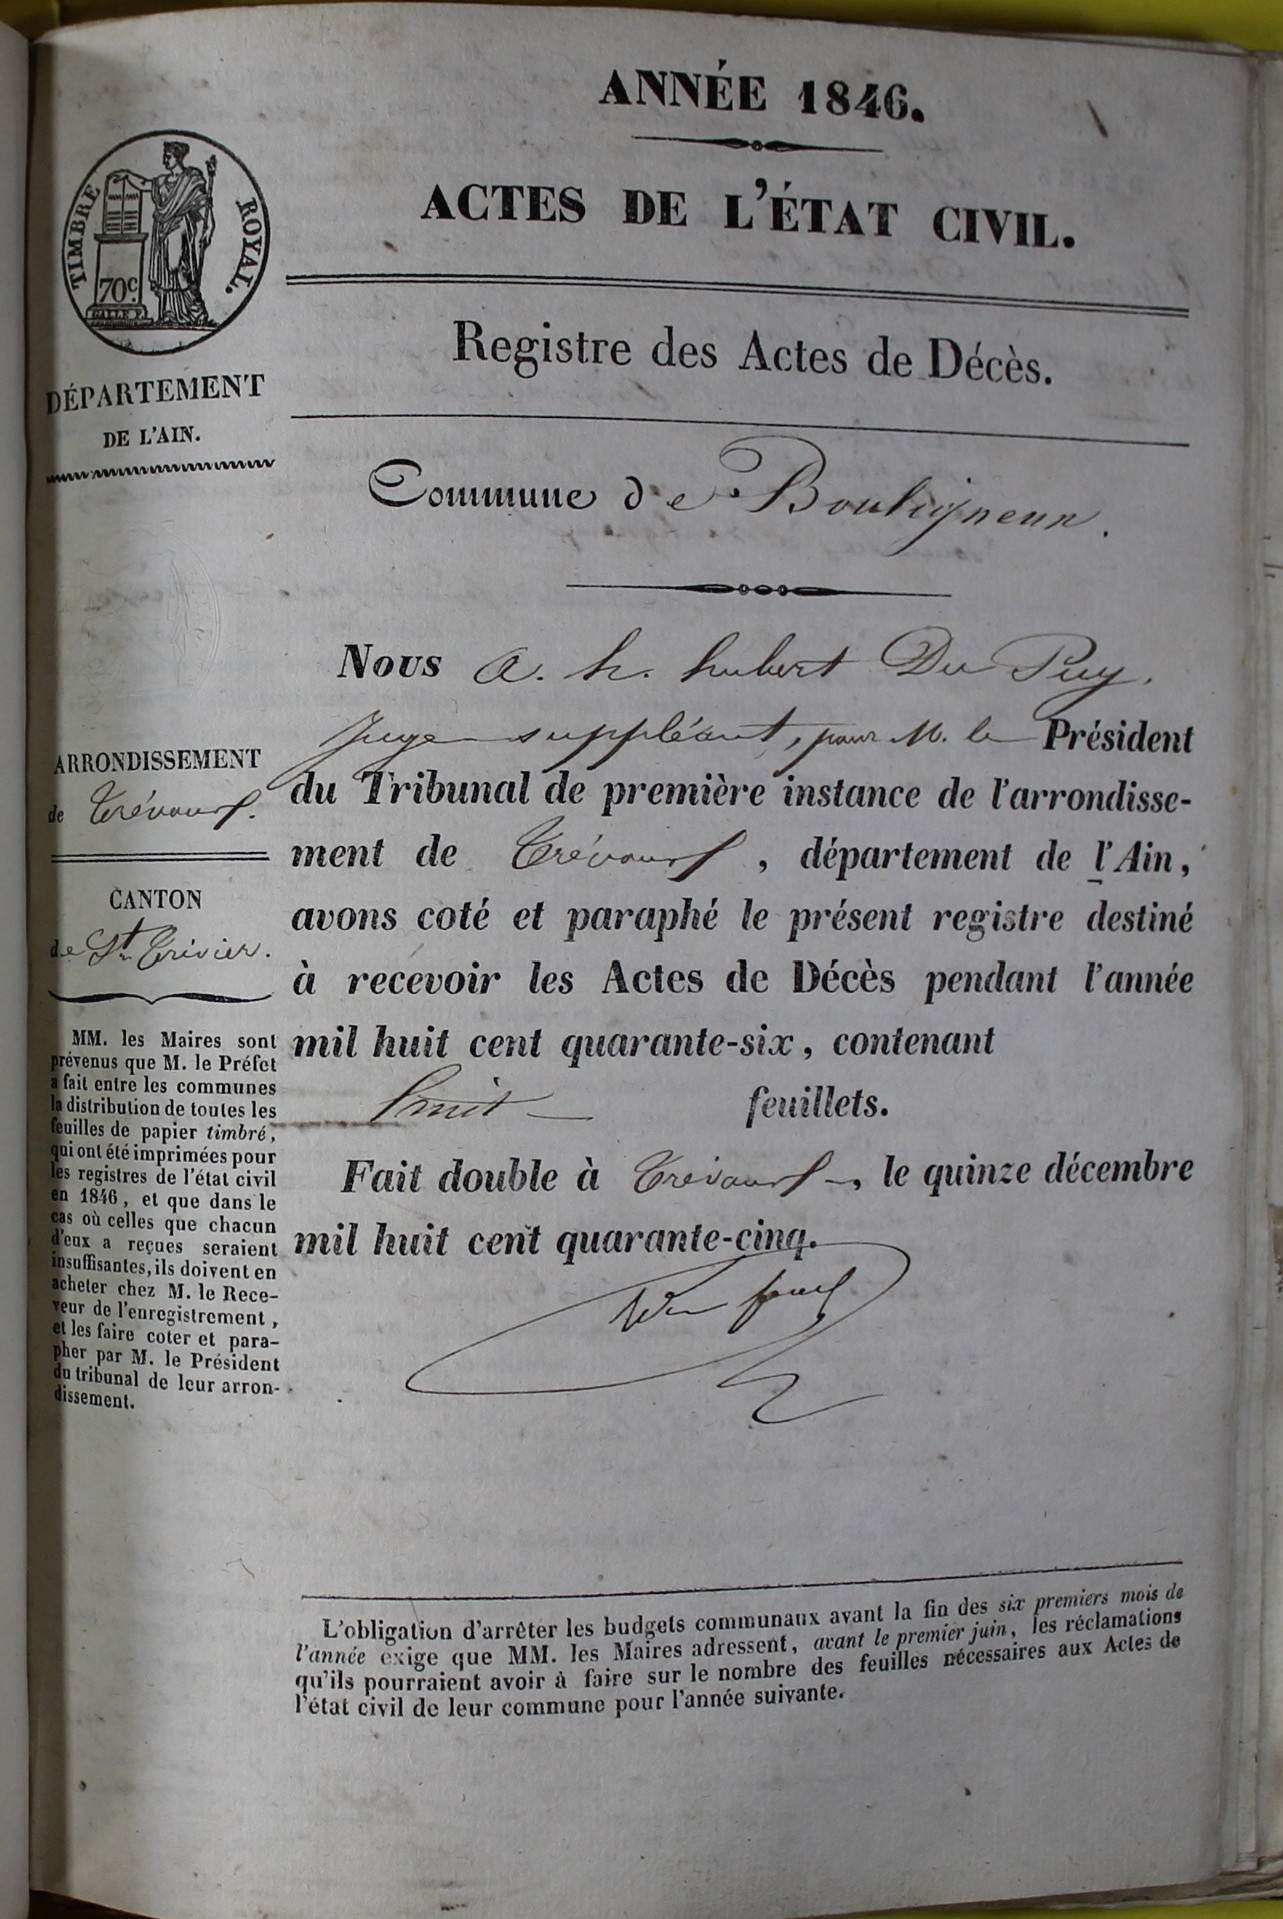 ANNÉE 1846.
ACTES DE L'ÉTAT CIVIL.
TIMBRE ROYAL.
70c.
DÉPARTEMENT
DE L'AIN.
Registre des Actes de Décès.
Commune de Bouligneux.
Nous a. h. hubert Du Puy,
Juge suppléant, pour M. le Président
du Tribunal de première instance de l'arrondisse-
ment de Trévoux, département de l'Ain,
avons coté et paraphé le présent registre destiné
à recevoir les Actes de Décès pendant l'année
mil huit cent quarante-six, contenant
huit feuillets.
Fait double à Trévoux, le quinze décembre
mil huit cent quarante-cinq.
ARRONDISSEMENT
de Trévoux.
CANTON
de St Trivier.
MM. les Maires sont
prévenus que M. le Préfet
a fait entre les communes
la distribution de toutes les
feuilles de papier timbré,
qui ont été imprimées pour
les registres de l'état civil
en 1846, et que dans le
cas où celles que chacun
d'eux a reçues seraient
insuffisantes, ils doivent en
acheter chez M. le Rece-
veur de l'enregistrement,
et les faire coter et para-
pher par M. le Président
du tribunal de leur arron-
dissement.
L'obligation d'arrêter les budgets communaux avant la fin des six premiers mois de
l'année exige que MM. les Maires adressent, avant le premier juin, les réclamations
qu'ils pourraient avoir à faire sur le nombre des feuilles nécessaires aux Actes de
l'état civil de leur commune pour l'année suivante.